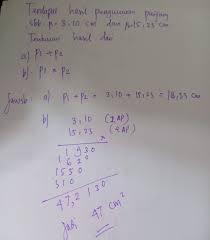 Terdapat hasil pengukuran panjang
sbb p = 3,10 cm dan p 15,23 cm
Tentukan hasil dari
a) P1 + P2
b) P1 × P2
Jawab: a) P1 + P2 = 3,10 + 15,23 = 18,33 cm
b) 3,10 (2 AP)
15,23 ( AP)
×
1 9 3 0
1 6 2 0
1550
310
47,2 1 3 0
Jadi 47 cm²